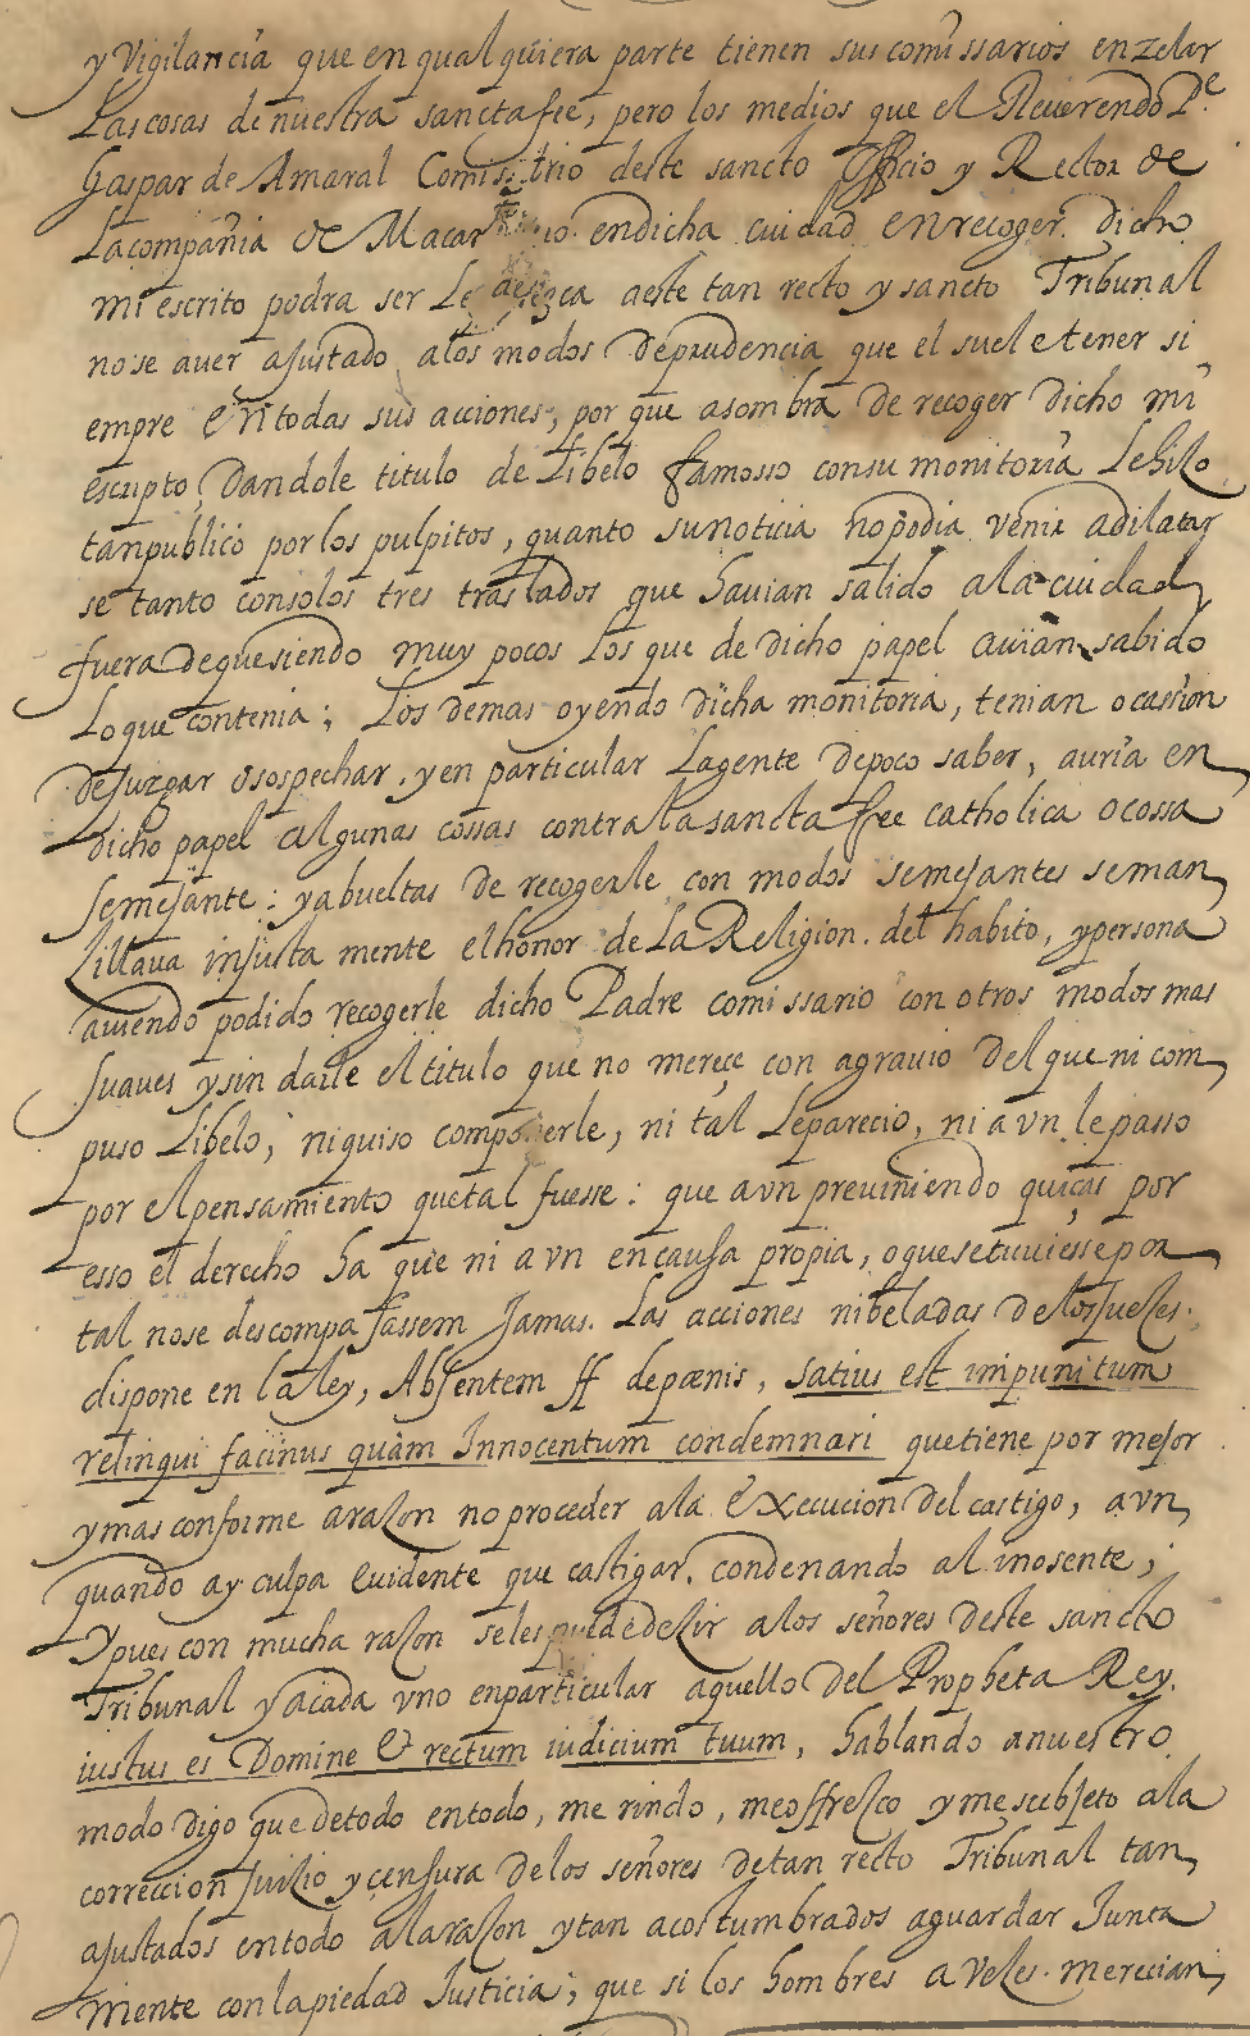 y Vigilancia que en qualquiera parte tienen sus comissarios en zelar
Las cosas de nuestra sancta fee, pero los medios que el Reuerendo P.e
Gaspar de Amaral Comissario deste sancto Officio y Rector de
La compañia de Macan en dicha cuidad en recoger dicho
mi escrito podra ser Le aeste tan recto y sancto Tribunal
no se auer ajustado alos modos de prudencia que el suele tener si
empre en todas sus acciones, por que asombra de recoger dicho mi
escripto, Dandole titulo de Libelo famosso con su monitoria Le hizo
tan publico por los pulpitos, quanto su noticia no podia venir adilatar
se tanto con solos tres traslados que hauian salido ala cuidad
fuera de que siendo muy pocos Los que de dicho papel auian sabido
Lo que contenia; Los demas oyendo dicha monitoria, tenian ocassion
de juzgar o sospechar, y en particular La gente de poco saber, auria en
dicho papel algunas cossas contra la sancta fee catholica o cossa
semejante: y abueltas de recogerle con modos semejantes se man
zillaua injusta mente el honor de La Religion. del habito, y persona
auiendo podido recogerle dicho Padre comissario con otros modos mas
suaues y sin darle el titulo que no mereçe con agrauio del que ni com
puso Libelo, ni quiso componerle, ni tal Le parecio, ni avn le passo
por el pensamiento que tal fuesse: que avn preuiniendo quiças por
esso el derecho ha que ni avn en causa propia, o que se tuuiesse por
tal no se descompasassem Jamas. Las acciones nibeladas de los juezes.
dispone en la ley, Absentem ff de pœnis, satius est impunitum
relinqui facinus quàm Innocentum condemnari que tiene por mejor
y mas conforme arazon no proceder ala execucion del castigo, avn
quando ay culpa euidente que castigar, condenando al inosente;
Y pues con mucha razon se les puede dezir alos señores deste sancto
Tribunal y acada vno en particular aquello del Propheta Rey.
iustus es Domine & rectum iudicium tuum, hablando anuestro
modo digo que de todo en todo, me rindo, me offrezco y me subjeto ala
correccion juizio y çensura de los señores de tan recto Tribunal tan
ajustados en todo ala razon y tan acostumbrados aguardar Junta
mente con la piedad Justicia; que si los hombres a vezes merecian